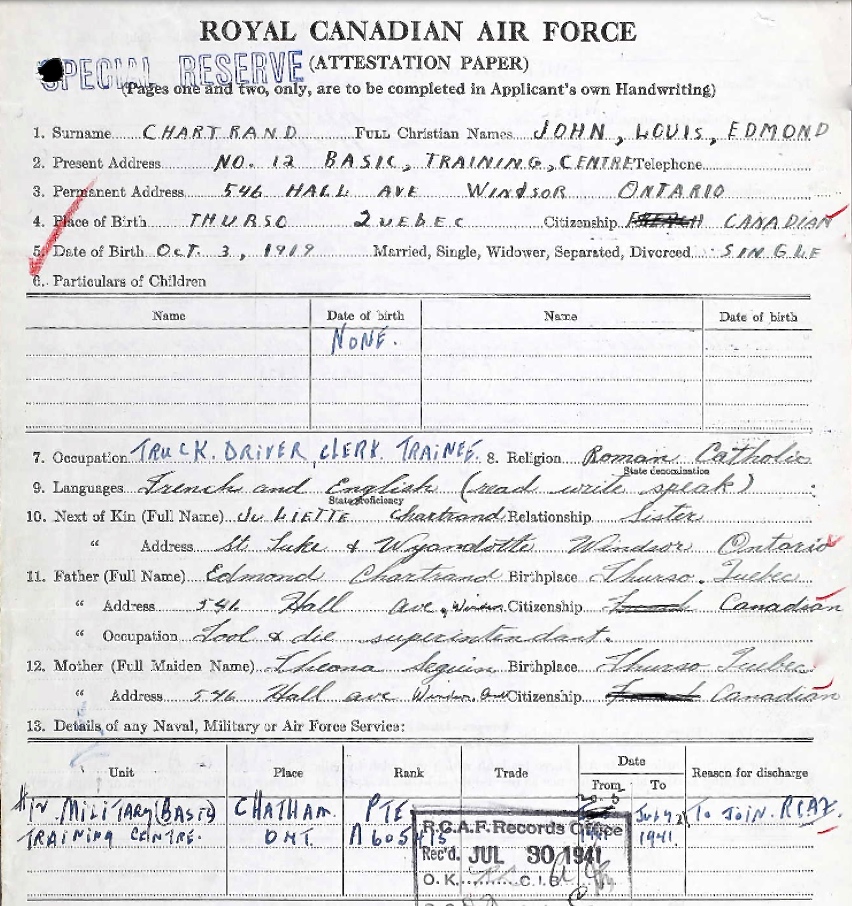 ROYAL CANADIAN AIR FORCE
SPECIAL RESERVE (ATTESTATION PAPER)
(Pages one and two, only, are to be completed in Applicant's own Handwriting)
1. Surname CHARTRAND Full Christian Names JOHN, LOUIS, EDMOND
2. Present Address NO. 12 BASIC, TRAINING, CENTRE Telephone
3. Permanent Address 546 HALL AVE WINDSOR ONTARIO
4. Place of Birth THURSO QUEBEC Citizenship FRENCH CANADIAN
5. Date of Birth OCT. 3, 1919 Married, Single, Widower, Separated, Divorced SINGLE
6. Particulars of Children
Name Date of birth Name Date of birth
NONE.
7. Occupation TRUCK. DRIVER, CLERK TRAINEE. 8. Religion Roman Catholic
State denomination
9. Languages French and English (read write speak)
State proficiency
10. Next of Kin (Full Name) JuLIETTE Chartrand Relationship Sister
" Address St. Luke & Wyandotte Windsor Ontario
11. Father (Full Name) Edmond Chartrand Birthplace Thurso. Quebec
" Address 546 Hall Ave, Windsor. Citizenship Canadian
" Occupation Tool & die superintendant.
12. Mother (Full Maiden Name) Theona Seguin Birthplace Thurso Quebec
" Address 546 Hall ave Windsor. Ont Citizenship Canadian
13. Details of any Naval, Military or Air Force Service:
Unit Place Rank Trade Date Reason for discharge
From To
MILITARY (BASIC) CHATHAM. PTE July 2 TO JOIN. RCAF.
TRAINING CENTRE. ONT. A605415 1941 1941.
R.C.A.F. Records Office
Rec'd. JUL 30 1941
O.K. C.I.B.